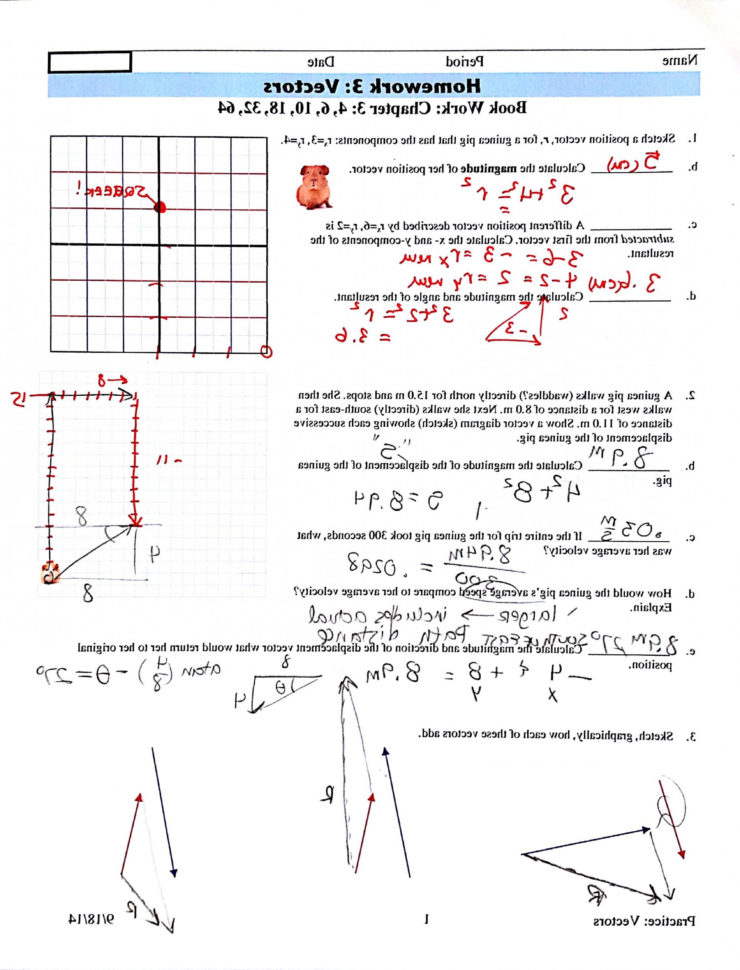 Name Period Date
Homework 3: Vectors
Book Work: Chapter 3: 4, 6, 10, 18, 32, 64
1. Sketch a position vector, r, for a guinea pig that has the components: rₓ=3, rᵧ=4.
b. 5 (cm) Calculate the magnitude of her position vector.
3² + 4² = r²
=
SQUEEK!
c. A different position vector described by rₓ=6, rᵧ=2 is
subtracted from the first vector. Calculate the x- and y-components of the
resultant.
3-6 = -3 = rx new
4-2 = 2 = ry new
3.6 (cm)
d. Calculate the magnitude and angle of the resultant.
3²+2² = r²
= 3.6
2
-3
2. A guinea pig walks (waddles?) directly north for 15.0 m and stops. She then
walks west for a distance of 8.0 m. Next she walks (directly) south-east for a
distance of 11.0 m. Show a vector diagram (sketch) showing each successive
displacement of the guinea pig.
8
15
-11
8
4
8
b. 8.9 m Calculate the magnitude of the displacement of the guinea
pig.
4² + 8²
= 8.94
c. .03 m/s If the entire trip for the guinea pig took 300 seconds, what
was her average velocity?
8.94m
300
= .0298
d. How would the guinea pig's average speed compare to her average velocity?
Explain.
larger → includes actual
path distance
e. 8.9m 27° southwest Calculate the magnitude and direction of the displacement vector what would return her to her original
position.
x y
4 + 8 = 8.9m
8
4
θ
atan (4/8) - θ = 27°
3. Sketch, graphically, how each of these vectors add.
R
R
R
Practice: Vectors 1 9/18/14